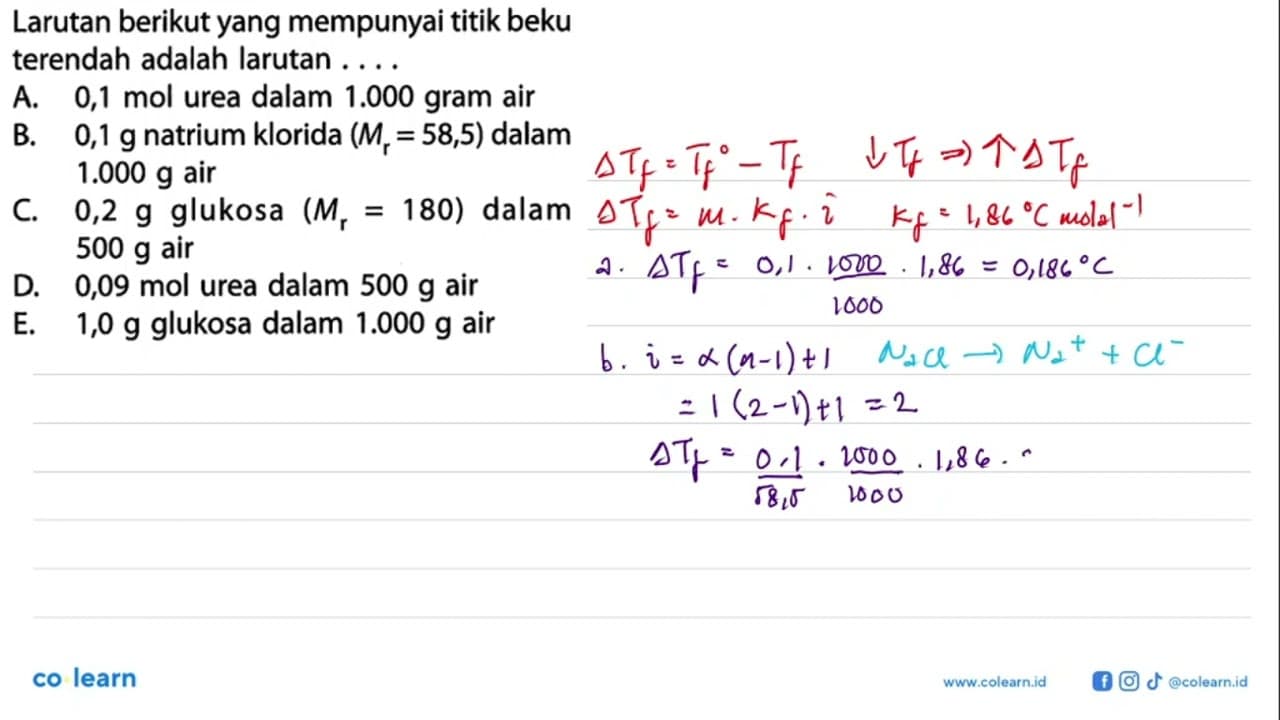 Larutan berikut yang mempunyai titik beku
terendah adalah larutan . . . .
A. 0,1 mol urea dalam 1.000 gram air
B. 0,1 g natrium klorida (Mr = 58,5) dalam
1.000 g air
C. 0,2 g glukosa (Mr = 180) dalam
500 g air
D. 0,09 mol urea dalam 500 g air
E. 1,0 g glukosa dalam 1.000 g air
ΔTf = Tf° − Tf ↓ Tf ⇒ ↑ ΔTf
ΔTf = m . Kf . i Kf = 1,86 °C molal⁻¹
a. ΔTf = 0,1 . 1000/1000 . 1,86 = 0,186 °C
b. i = α (n−1) + 1 NaCl → Na⁺ + Cl⁻
= 1 (2−1) + 1 = 2
ΔTf = 0,1/58,5 . 1000/1000 . 1,86 .
co learn
www.colearn.id @colearn.id